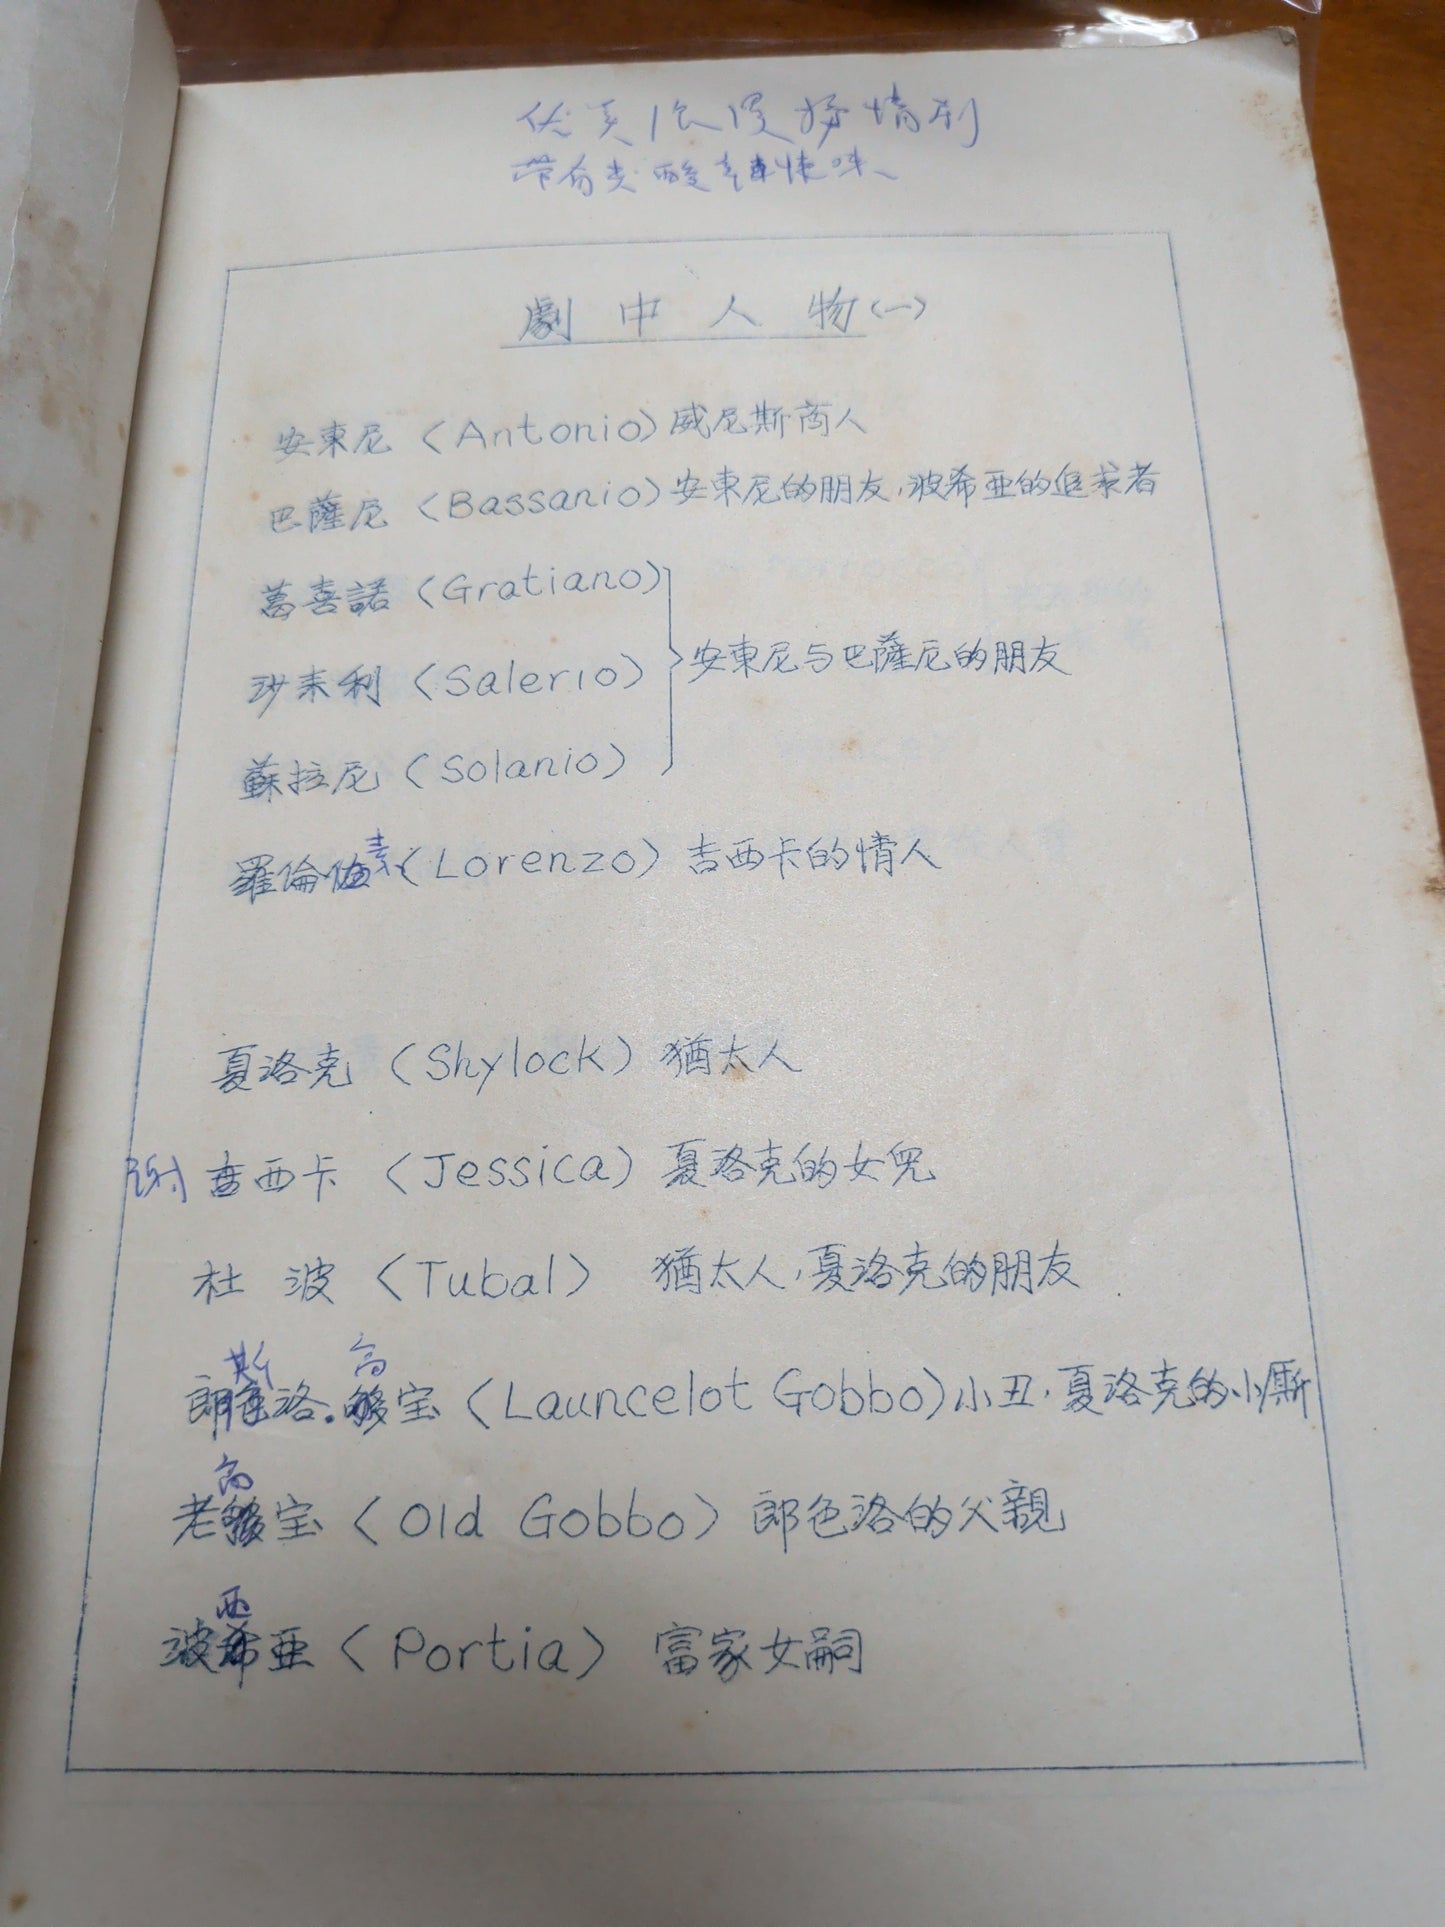 优美浪漫抒情剧
带有些酸辣味
劇中人物(一)
安東尼(Antonio)威尼斯商人
巴薩尼(Bassanio)安東尼的朋友,波希亞的追求者
葛喜諾(Gratiano)
沙耒利(Salerio)
安東尼与巴薩尼的朋友
蘇拉尼(Solanio)
素
羅倫(Lorenzo)吉西卡的情人
夏洛克(Shylock)猶太人
謝吉西卡(Jessica)夏洛克的女兒
杜波(Tubal)猶太人,夏洛克的朋友
斯 高
郎色洛.够宝(Launcelot Gobbo)小丑,夏洛克的小厮
高
老够宝(Old Gobbo)郎色洛的父親
西
波希亞(Portia)富家女嗣